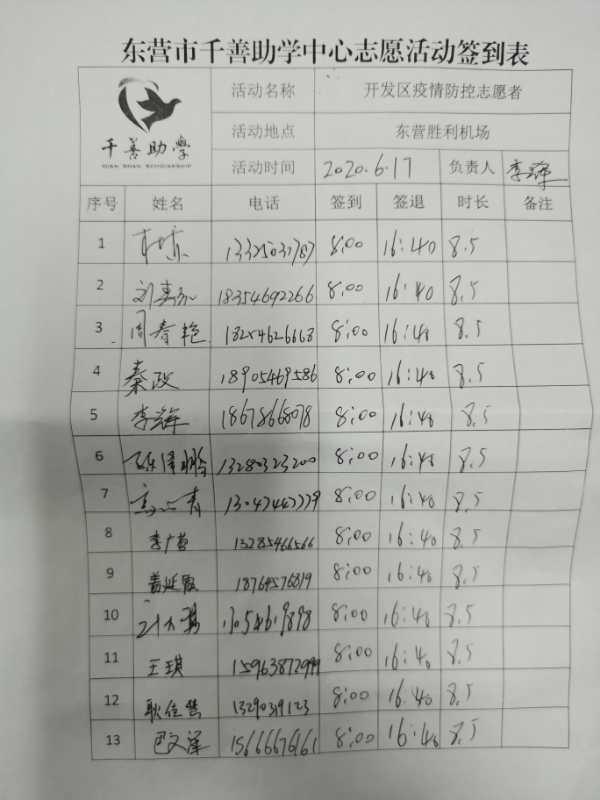 东营市千善助学中心志愿活动签到表
千善助学
活动名称 开发区疫情防控志愿者
活动地点 东营胜利机场
活动时间 2020.6.17 负责人 李辉
序号 姓名 电话 签到 签退 时长 备注
1 8:00 16:40 8.5
2 18354692266 8:00 16:40 8.5
3 周春艳 18254626668 8:00 16:40 8.5
4 秦政 18905469586 8:00 16:40 8.5
5 李辉 18678668078 8:00 16:40 8.5
6 13280323200 8:00 16:40 8.5
7 8:00 16:40 8.5
8 13285466566 8:00 16:40 8.5
9 盖延霞 18764576819 8:00 16:40 8.5
10 13054619898 8:00 16:40 8.5
11 王琪 8:00 16:40 8.5
12 耿佳隽 13290319123 8:00 16:40 8.5
13 巴文泽 15666676161 8:00 16:40 8.5